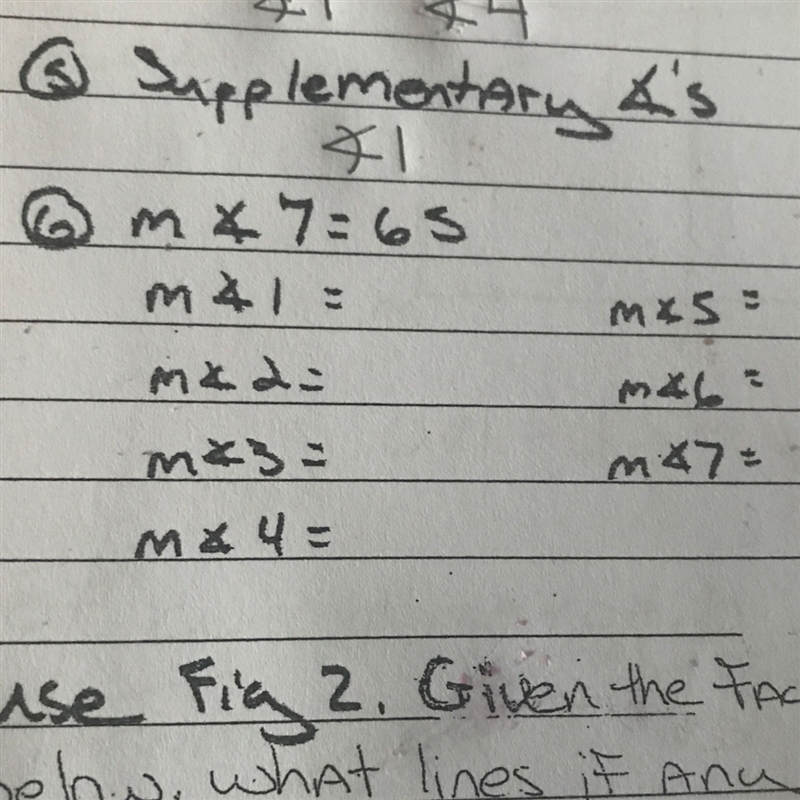 ∡1 ∡4
⑤ Supplementary ∡'s
∡1
⑥ m∡7=65
m∡1 = m∡5 =
m∡2= m∡6 =
m∡3 = m∡7=
m∡4=
use Fig 2. Given the
below, what lines if any